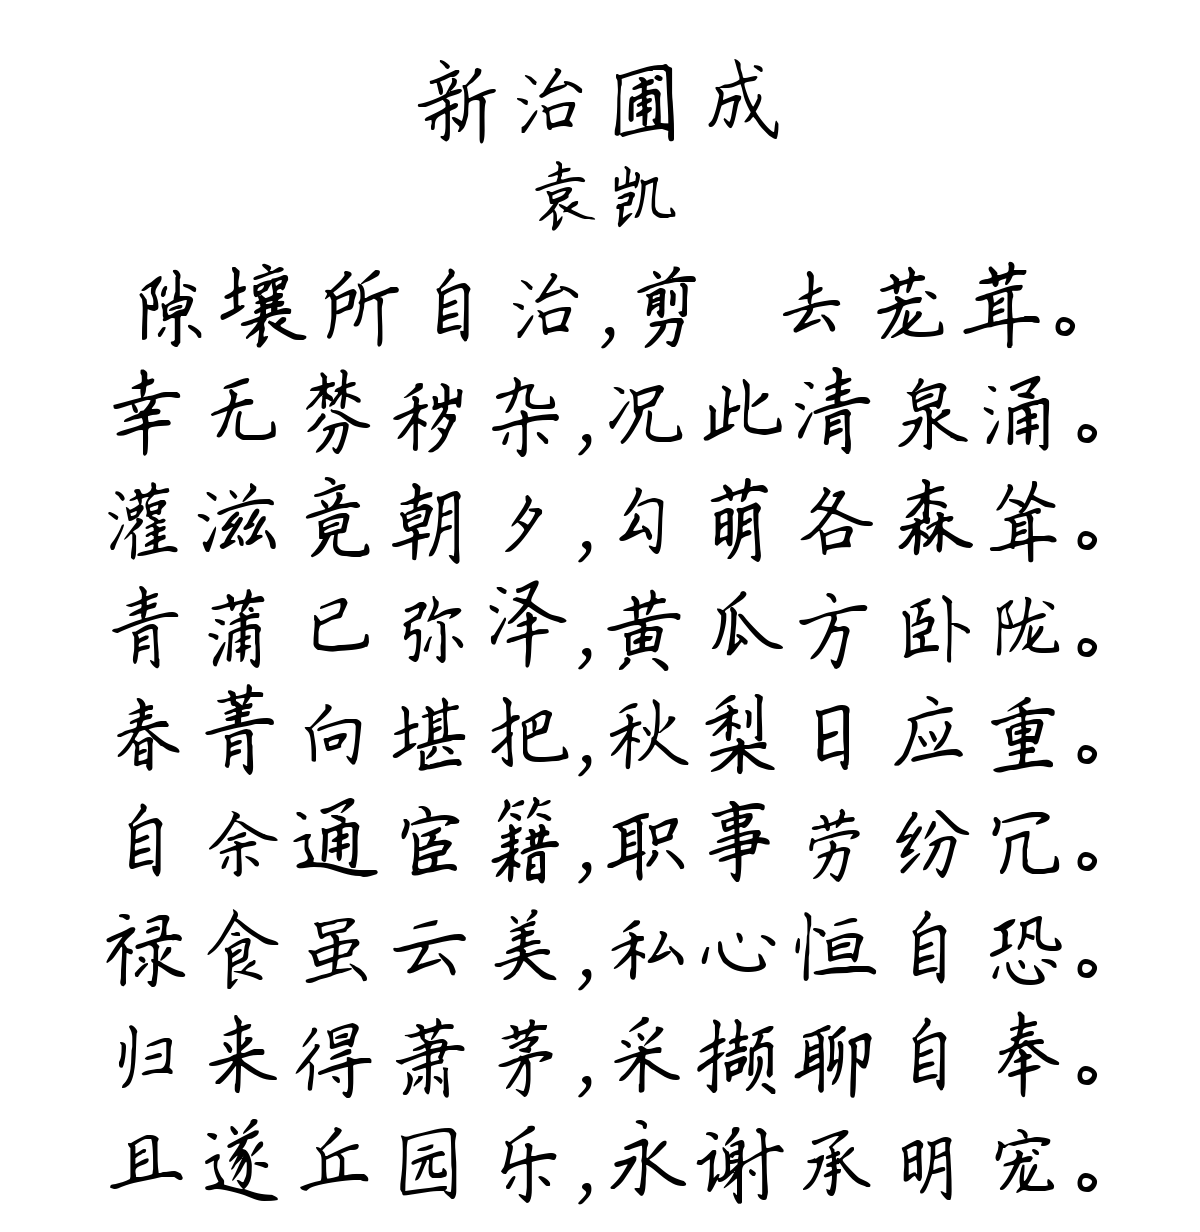 新治圃成
袁凯
隙壤所自治,剪 去茏茸。
幸无棼秽杂,况此清泉涌。
灌滋竟朝夕,勾萌各森耸。
青蒲已弥泽,黄瓜方卧陇。
春菁向堪把,秋梨日应重。
自余通宦籍,职事劳纷冗。
禄食虽云美,私心恒自恐。
归来得萧茅,采撷聊自奉。
且遂丘园乐,永谢承明宠。